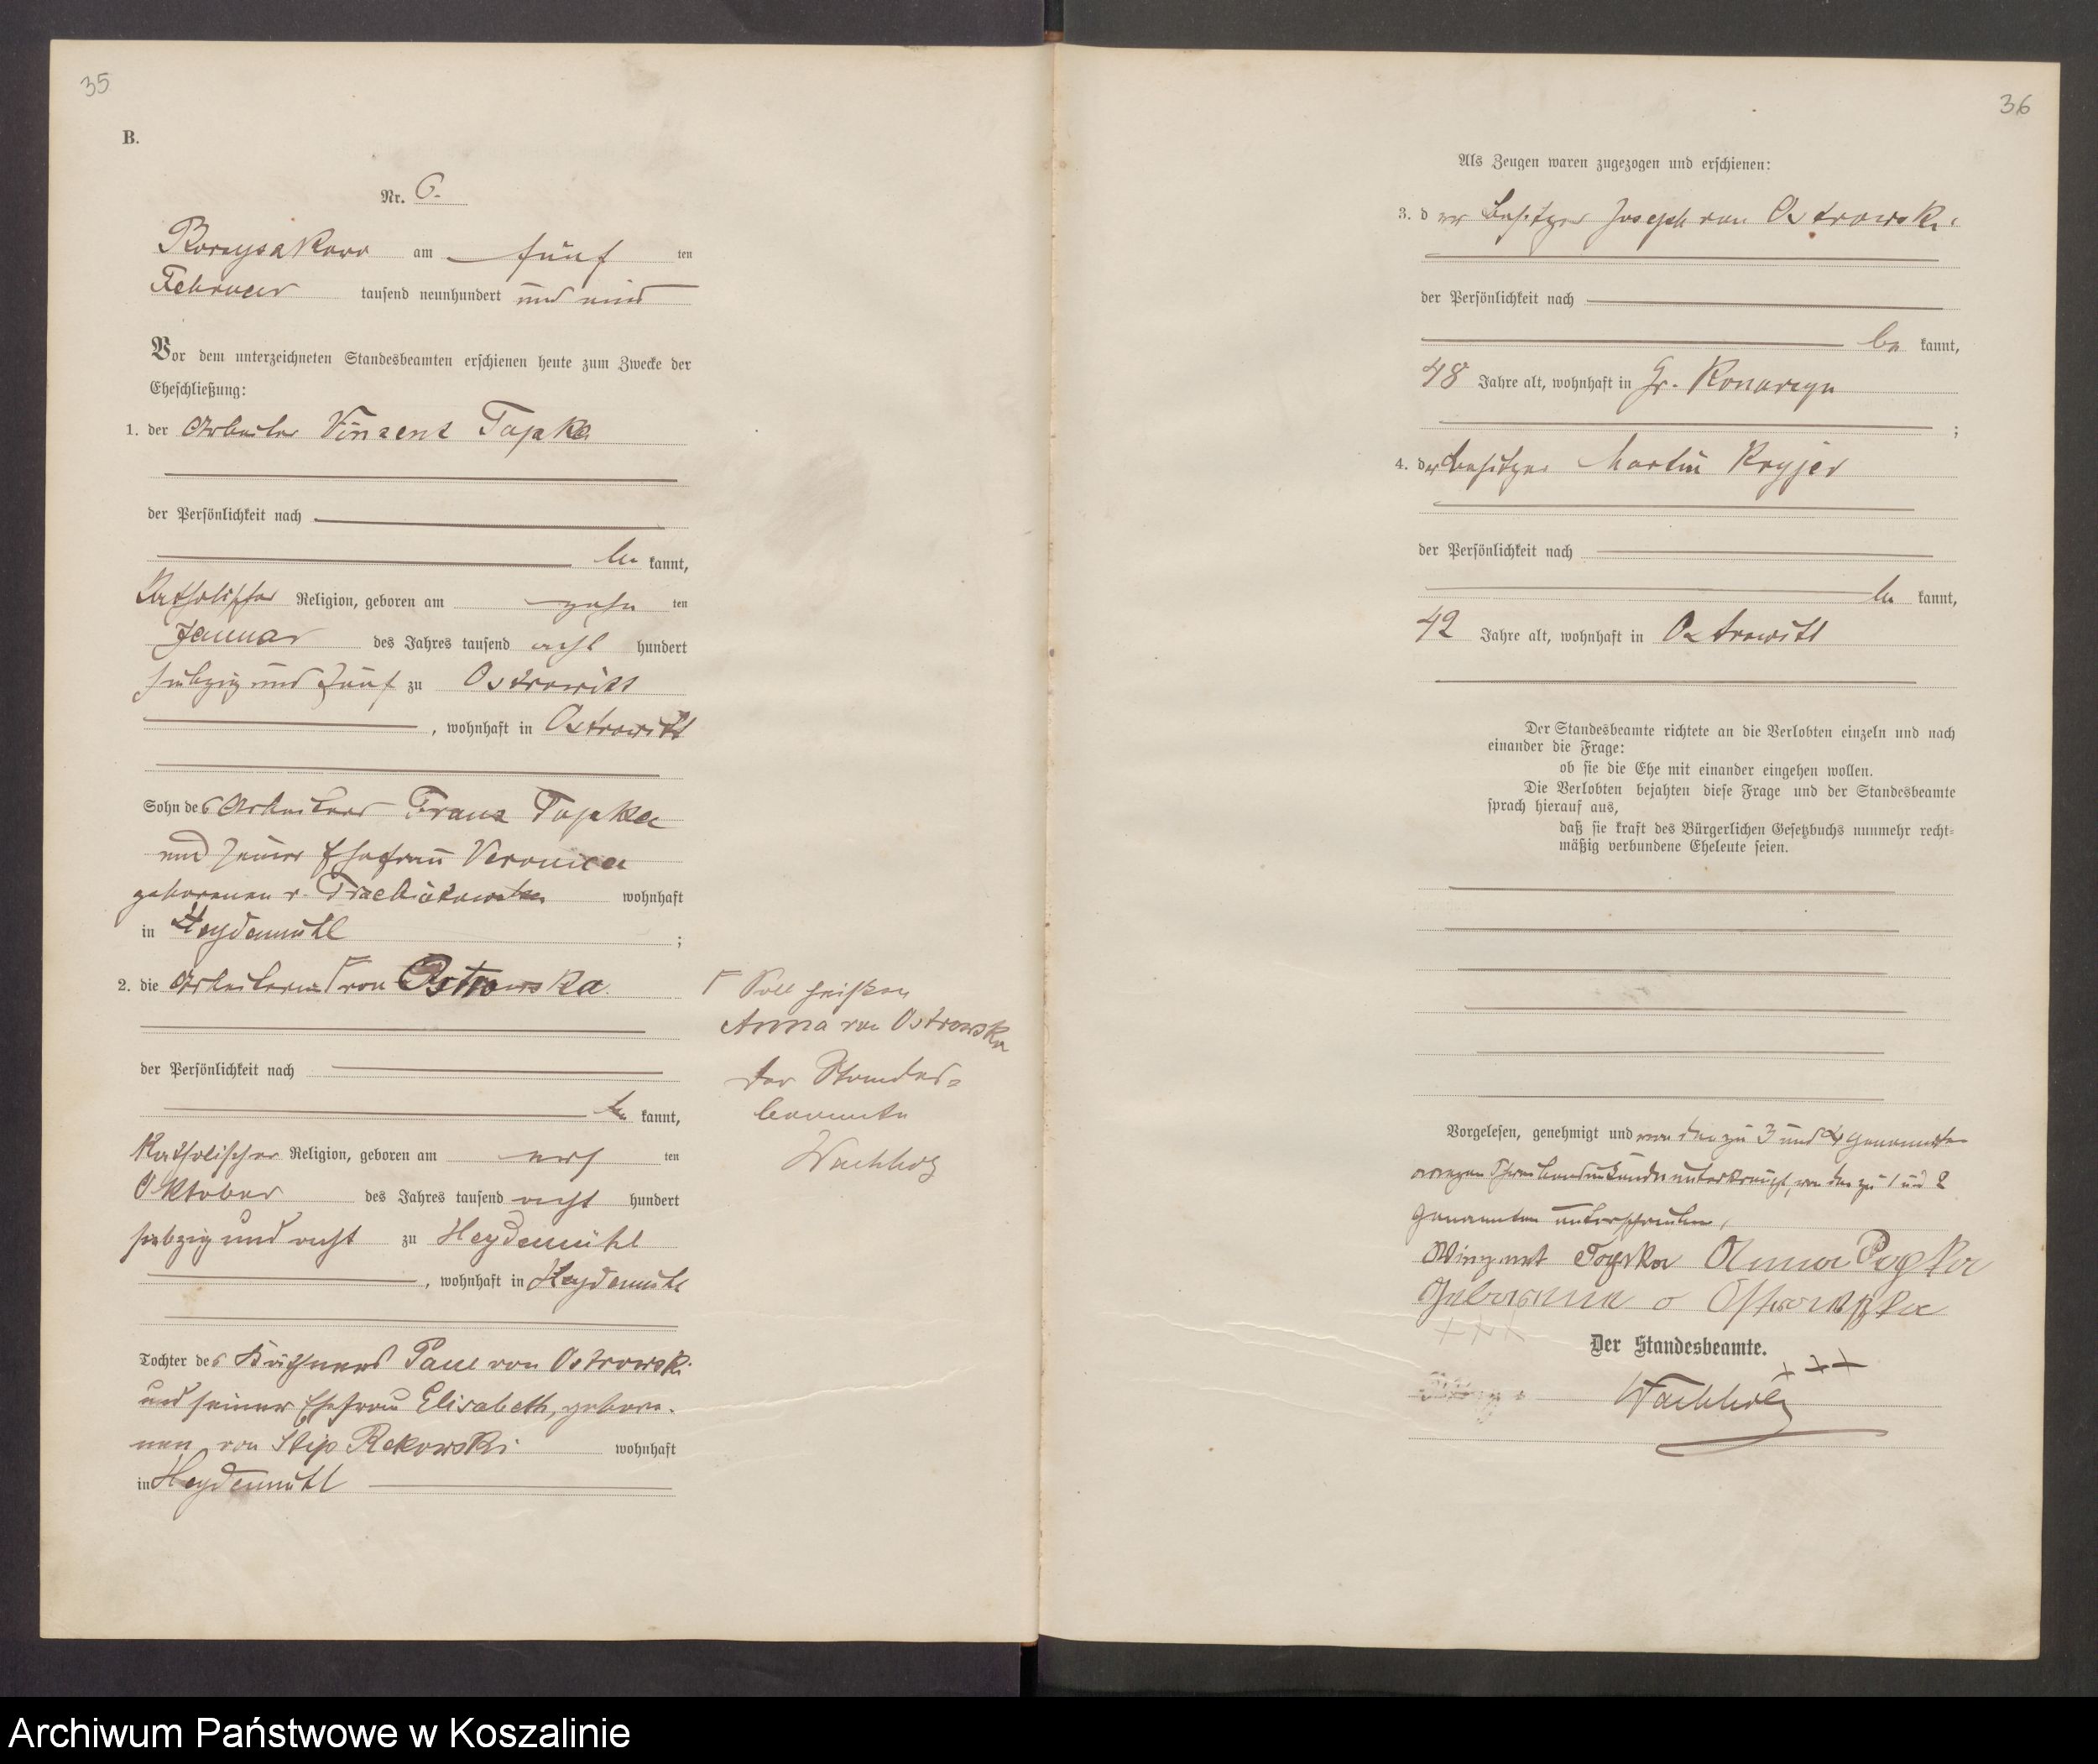 35
B.
Nr. 6.
am fünf ten
Februar tausend neunhundert und eins
Vor dem unterzeichneten Standesbeamten erschienen heute zum Zwecke der
Eheschließung:
1. der Arbeiter Vinzent
der Persönlichkeit nach
be kannt,
Katholischer Religion, geboren am zehn ten
Januar des Jahres tausend acht hundert
siebzig und fünf zu Ostrowitt
, wohnhaft in Ostrowitt
Sohn des Arbeiters Franz
und seiner Ehefrau Veronica
geborenen v. wohnhaft
in Heydemühl ;
2. die Arbeiterin Γ von Ostrowska
der Persönlichkeit nach
be kannt,
Katholischer Religion, geboren am ten
Oktober des Jahres tausend acht hundert
siebzig und acht zu Heydemühl
, wohnhaft in Heydemühl
Tochter des Käthners Paul von Ostrowski
und seiner Ehefrau Elisabeth, gebore-
nen von Stip Rekowski wohnhaft
in Heydemühl
Γ Soll heißen
Anna von Ostrowska
Der Standes-
beamte
Wachholz
36
Als Zeugen waren zugezogen und erschienen:
3. der Besitzer Joseph von Ostrowski
der Persönlichkeit nach
be kannt,
48 Jahre alt, wohnhaft in Gr. Konarczyn
;
4. der Besitzer Martin
der Persönlichkeit nach
be kannt,
42 Jahre alt, wohnhaft in Ostrowitt
Der Standesbeamte richtete an die Verlobten einzeln und nach
einander die Frage:
ob sie die Ehe mit einander eingehen wollen.
Die Verlobten bejahten diese Frage und der Standesbeamte
sprach hierauf aus,
daß sie kraft des Bürgerlichen Gesetzbuchs nunmehr recht-
mäßig verbundene Eheleute seien.
Vorgelesen, genehmigt und von den zu 3 und 4 genannten
wegen Schreibensunkunde unterkreuzt, von den zu 1 und 2
genannten unterschrieben.
Anna
Geborene v Ostrowska
+++
Der Standesbeamte.
+++
Wachholz
Archiwum Państwowe w Koszalinie